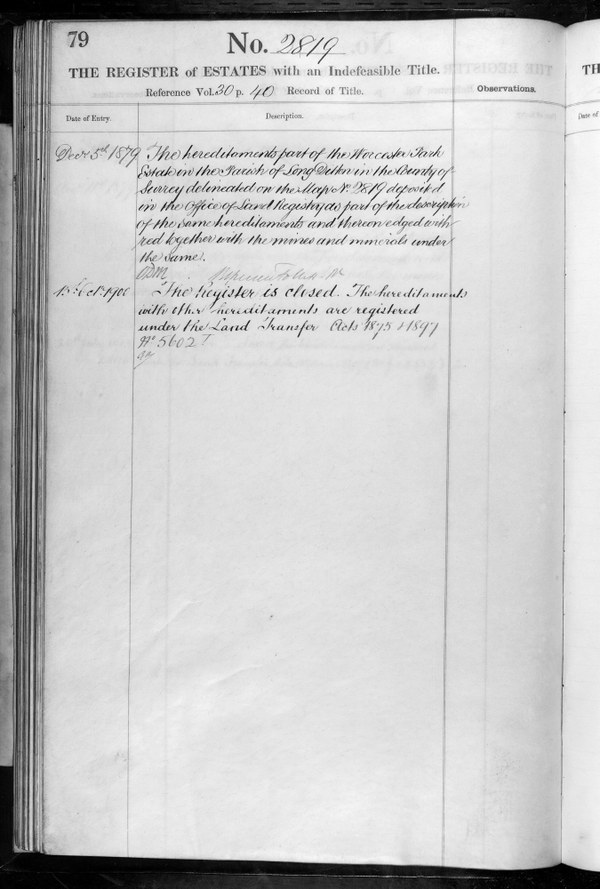 79
No. 2819
THE REGISTER of ESTATES with an Indefeasible Title.
Reference Vol. 30 p. 40 Record of Title.
Observations.
Date of Entry.
Description.
Decr 5th 1879 The hereditaments part of the Worcester Park
Estate in the Parish of Long Ditton in the County of
Surrey delineated on the Map No 2819 deposited
in the Office of Land Registry as part of the description
of the same hereditaments and thereon edged with
red together with the mines and minerals under
the same.
15th Oct. 1900 The Register is closed. The hereditaments
with other hereditaments are registered
under the Land Transfer Acts 1875 & 1897
No 5602
TH
Date of